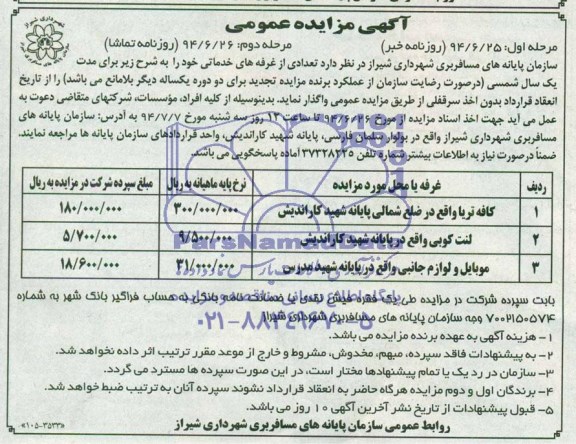 شهرداری شیراز
آگهی مزایده عمومی
مرحله اول: ۹۴/۶/۲۵ (روزنامه خبر) مرحله دوم: ۹۴/۶/۲۶ (روزنامه تماشا)
سازمان پایانه های مسافربری شهرداری شیراز در نظر دارد تعدادی از غرفه های خدماتی خود را به شرح زیر برای مدت
یک سال شمسی (درصورت رضایت سازمان از عملکرد برنده مزایده تجدید برای دو دوره یکساله دیگر بلامانع می باشد) را از تاریخ
انعقاد قرارداد بدون اخذ سرقفلی از طریق مزایده عمومی واگذار نماید. بدینوسیله از کلیه افراد، مؤسسات، شرکتهای متقاضی دعوت به
عمل می آید جهت اخذ اسناد مزایده از مورخ ۹۴/۶/۲۶ تا ساعت ۱۳ روز سه شنبه مورخ ۹۴/۷/۷ به آدرس: سازمان پایانه های
مسافربری شهرداری شیراز واقع در بولوار سلمان فارسی، پایانه شهید کاراندیش، واحد قراردادهای سازمان پایانه ها مراجعه نمایند.
ضمناً درصورت نیاز به اطلاعات بیشتر شماره تلفن ۳۷۳۲۸۲۲۵ آماده پاسخگویی می باشد.
ردیف غرفه یا محل مورد مزایده نرخ پایه ماهیانه به ریال مبلغ سپرده شرکت در مزایده به ریال
۱ کافه تریا واقع در ضلع شمالی پایانه شهید کاراندیش ۳۰۰/۰۰۰/۰۰۰ ۱۸۰/۰۰۰/۰۰۰
۲ لنت کوبی واقع در پایانه شهید کاراندیش ۹/۵۰۰/۰۰۰ ۵/۷۰۰/۰۰۰
۳ موبایل و لوازم جانبی واقع در پایانه شهید مدرس ۳۱/۰۰۰/۰۰۰ ۱۸/۶۰۰/۰۰۰
ParsNamadData
پایگاه اطلاع رسانی مناقصه و مزایده
۰۲۱-۸۸۳۴۹۶۷۰-۵
بابت سپرده شرکت در مزایده طی یک فقره فیش نقدی یا ضمانت نامه بانکی به حساب فراگیر بانک شهر به شماره
۷۰۰۲۱۵۰۵۷۴ وجه سازمان پایانه های مسافربری شهرداری شیراز
۱- هزینه آگهی به عهده برنده مزایده می باشد.
۲- به پیشنهادات فاقد سپرده، مبهم، مخدوش، مشروط و خارج از موعد مقرر ترتیب اثر داده نخواهد شد.
۳- سازمان در رد یک یا تمام پیشنهادها مختار است، در این صورت سپرده ها مسترد می گردد.
۴- برندگان اول و دوم مزایده هرگاه حاضر به انعقاد قرارداد نشوند سپرده آنان به ترتیب ضبط خواهد شد.
۵- قبول پیشنهادات از تاریخ نشر آخرین آگهی ۱۰ روز می باشد.
روابط عمومی سازمان پایانه های مسافربری شهرداری شیراز
«۱۰۵-۳۵۳۳»